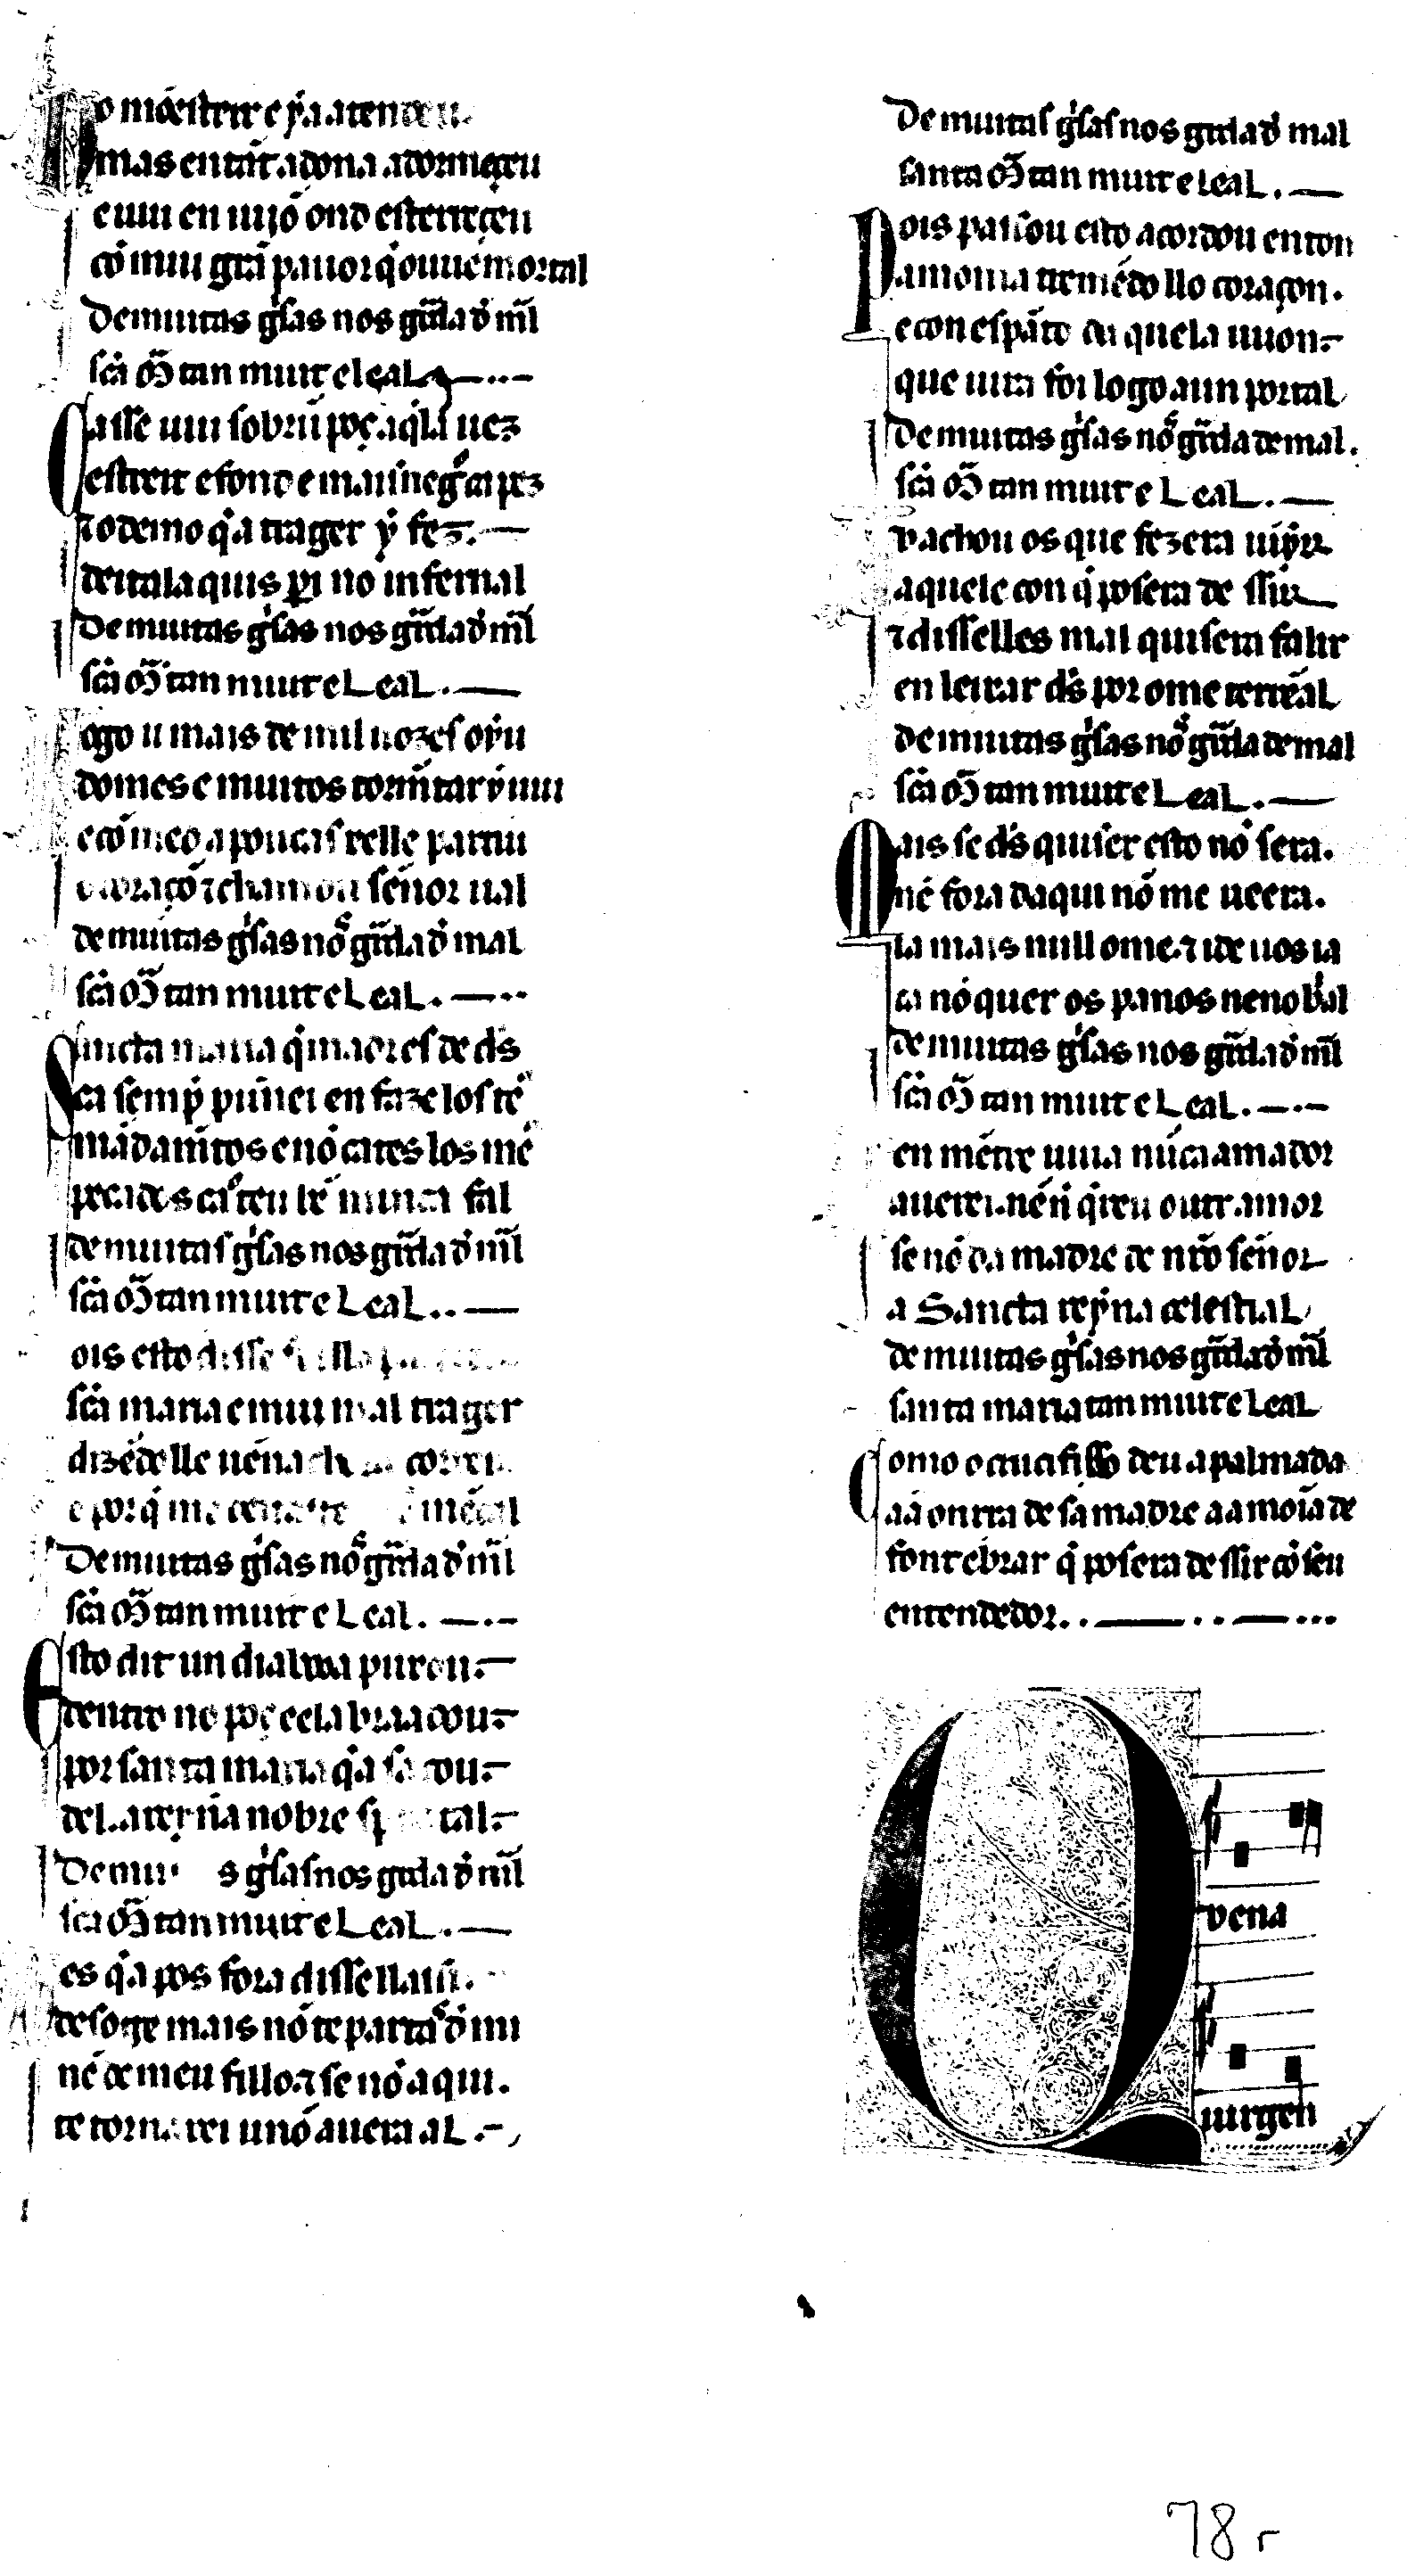 o mõesteir e ýa atendeu.
mas entãt a dona adormeçeu
e uiu en uijõ ond esterreçeu
cõ mui grã pauor q̇ ouue mortal
De muitas g̃sas nos g̃uda d̃ m̃l
sc̃a M̃ tan muit e leal
asse uiu sobr ũ poç aq̃la uez
estreit e fond e mais neg̃ ca pez
⁊ o demo q̃ a trager ý fez.
deital a quis p̱ i no infernal
De muitas g̃sas nos g̃uda d̃ m̃l
sc̃a M̃ tan muit e Leal.
ogo u mais de mil uozes oýu
domes e muitos torm̃tar ý uiu
e cõ medo a poucas xelle partiu
o coraçõ ⁊ chamou señor ual
de muitas g̃sas nõ g̃uda d̃ mal
sc̃a M̃ tan muit e Leal.
ancta maria q̃ madr es de d̃s
ca semp̃ punnei en fazelos tẽ
mãdam̃tos e nõ cates los mẽ
pecados ca o teu bẽ nunca fal
de muitas g̃sas nos g̃uda d̃ m̃l
sc̃a M̃ tan muit e Leal..
ois esto disse
sc̃a maria e mui mal trager
dizẽdelle uẽn ach
e porq̃ me
De muitas g̃sas nõ g̃uda d̃ m̃l
sc̃a M̃ tan muit e Leal.
sto dit un diabr a puxou.
dentro no poç e ela braadou.
por santa maria q̃ a sacou.
del a reýña nobre sp tal.
De mui s g̃sas nos guda d̃ m̃l
sc̃a M̃ tan muit e Leal.
es q̃ a pos fora disse ll assi.
des oge mais nõ te partas d̃ mi
nẽ de meu fillo. ⁊ se nõ aqui.
te tornarei u nõ auera al.
De muitas g̃sas nos guda d̃ mal
santa M̃ tan muit e leal.
ois passou esto acordou enton
a monia tremẽdo llo coraçon.
e con espãto da quela uuon.
que uira foi logo a un portal
De muitas g̃sas nõ g̃uda de mal.
sc̃a M̃ tan muit e Leal.
v achou os que fezera uĩjr
aquele con q̃ posera de ssir
⁊ disselles mal quisera falir
en leixar d̃s por ome terrẽal
de muitas g̃sas nõ g̃uda de mal
sc̃a M̃ tan muit e Leal.
ais se d̃s quiser esto nõ sera.
nẽ fora daqui nõ me ueera.
ia mais null ome. ⁊ ide uos ia
ca nõ quer os panos neno b̃al
de muitas g̃sas nos g̃uda d̃ m̃l
sc̃a M̃ tan muit e Leal.
en mẽtre uiua nũca amador
auerei. nẽ ñ q̃reu outr amor
se nõ da madre de nr̃o señor
a Sancta reýna celestial
de muitas g̃sas nos g̃uda d̃ m̃l
santa maria tan muit e Leal
omo o crucifisso deu a palmada
aa onrra de sa madre aa moĩa de
fontebrar q̃ posera de ssir cõ seu
entendedor.
vena
uirgen
78 r